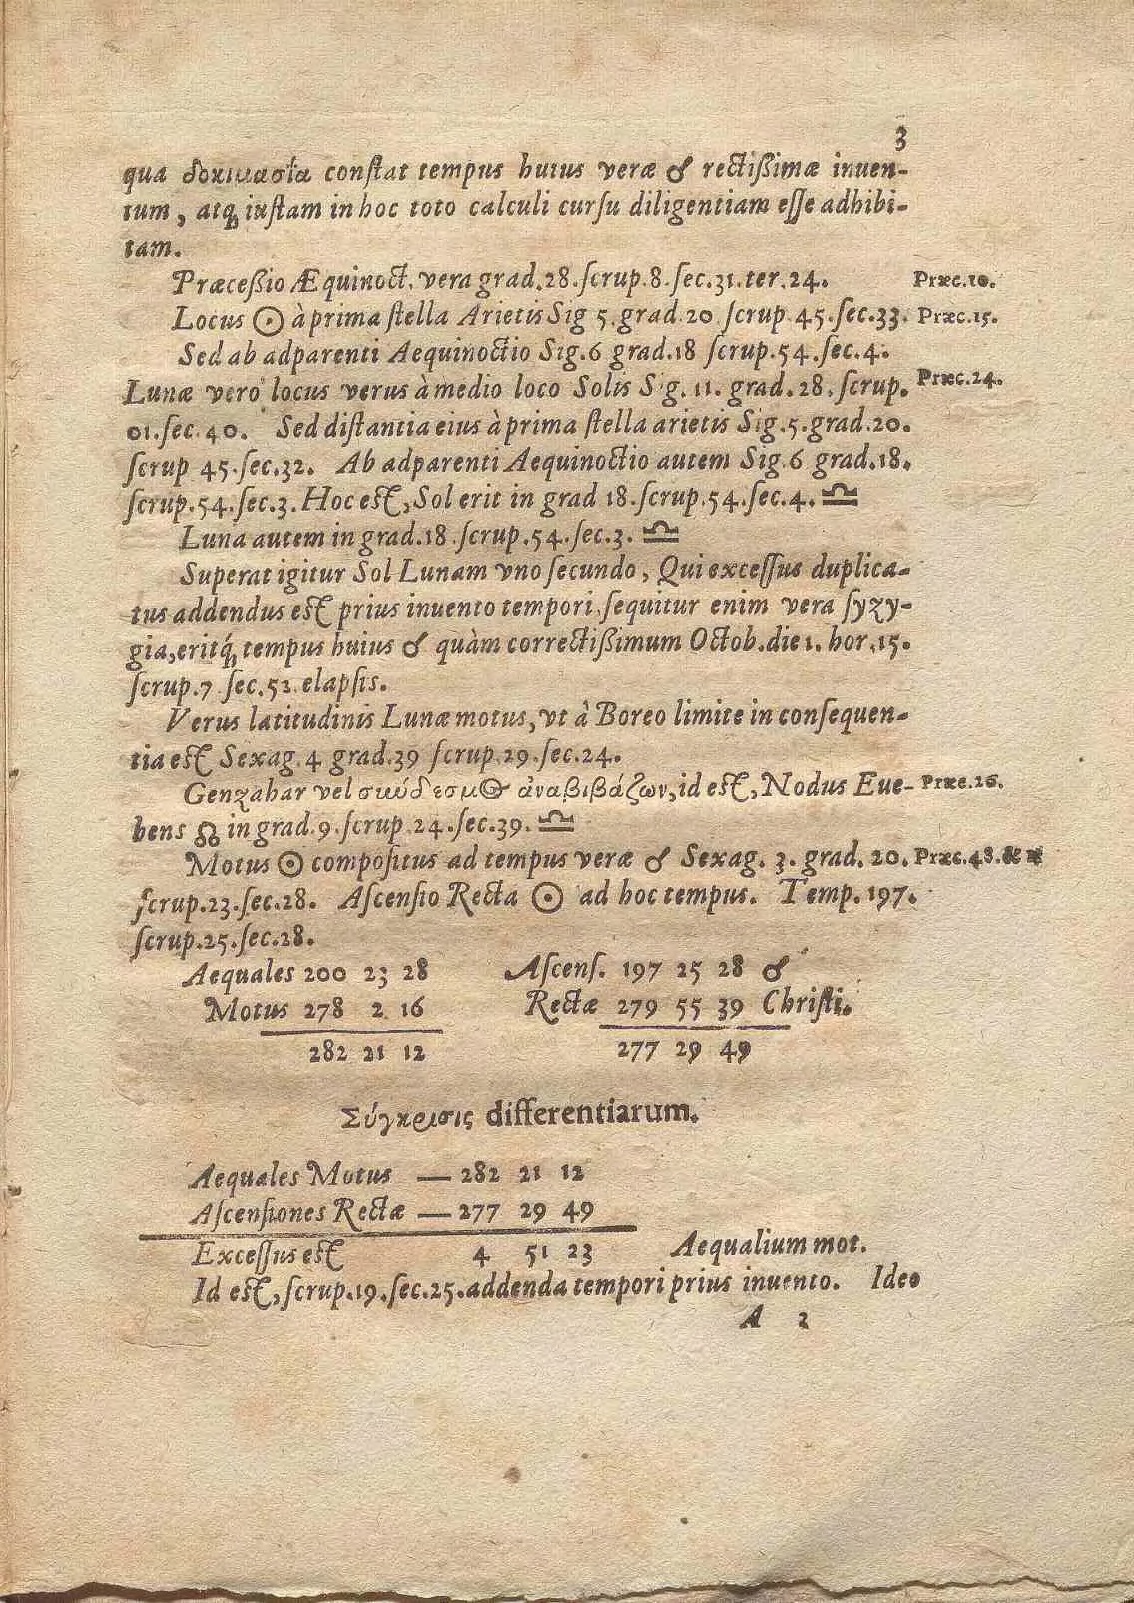 3
qua δοκιμασία conſtat tempus huius veræ ☌ rectiſsimæ inuen-
tum, atq́ iuſtam in hoc toto calculi curſu diligentiam eſſe adhibi-
tam.
Præceſsio Æquinoct. vera grad.28.ſcrup.8.ſec.31.ter.24. Præc.10.
Locus ☉ à prima ſtella Arietis Sig 5.grad.20 ſcrup.45.ſec.33. Præc.15.
Sed ab adparenti Aequinoctio Sig.6 grad.18 ſcrup.54.ſec.4.
Lunæ vero locus verus à medio loco Solis Sig. 11. grad.28.ſcrup. Præc.24.
01.ſec.40. Sed diſtantia eius à prima ſtella arietis Sig.5.grad.20.
ſcrup 45.ſec.32. Ab adparenti Aequinoctio autem Sig.6 grad.18.
ſcrup.54.ſec.3. Hoc eſt, Sol erit in grad 18.ſcrup.54.ſec.4. ♎
Luna autem in grad.18.ſcrup.54.ſec.3. ♎
Superat igitur Sol Lunam vno ſecundo, Qui exceſſus duplica-
tus addendus eſt prius inuento tempori, ſequitur enim vera ſyzy-
gia, eritq́, tempus huius ☌ quàm correctiſsimum Octob.die 1. hor.15.
ſcrup.7 ſec.52.elapſis.
Verus latitudinis Lunæ motus, vt à Boreo limite in conſequen-
tia eſt Sexag.4 grad.39 ſcrup.29.ſec.24.
Genzahar vel σιωύδεσμος ἀναβιβάζων, id eſt, Nodus Eue- Præc.26.
hens ☊ in grad.9.ſcrup.24.ſec.39. ♎
Motus ☉ compoſitus ad tempus veræ ☌ Sexag. 3. grad. 20. Præc.48.&
ſcrup.23.ſec.28. Aſcenſio Recta ☉ ad hoc tempus. Temp.197.
ſcrup.25.ſec.28.
Aequales 200 23 28 Aſcenſ. 197 25 28 ☌
Motus 278 2 16 Rectæ 279 55 39 Chriſti.
282 21 12 277 29 49
Σύγκρισις differentiarum.
Aequales Motus — 282 21 12
Aſcenſiones Rectæ — 277 29 49
Exceſſus eſt 4 51 23 Aequalium mot.
Id eſt, ſcrup.19.ſec.25.addenda tempori prius inuento. Ideo
A 2